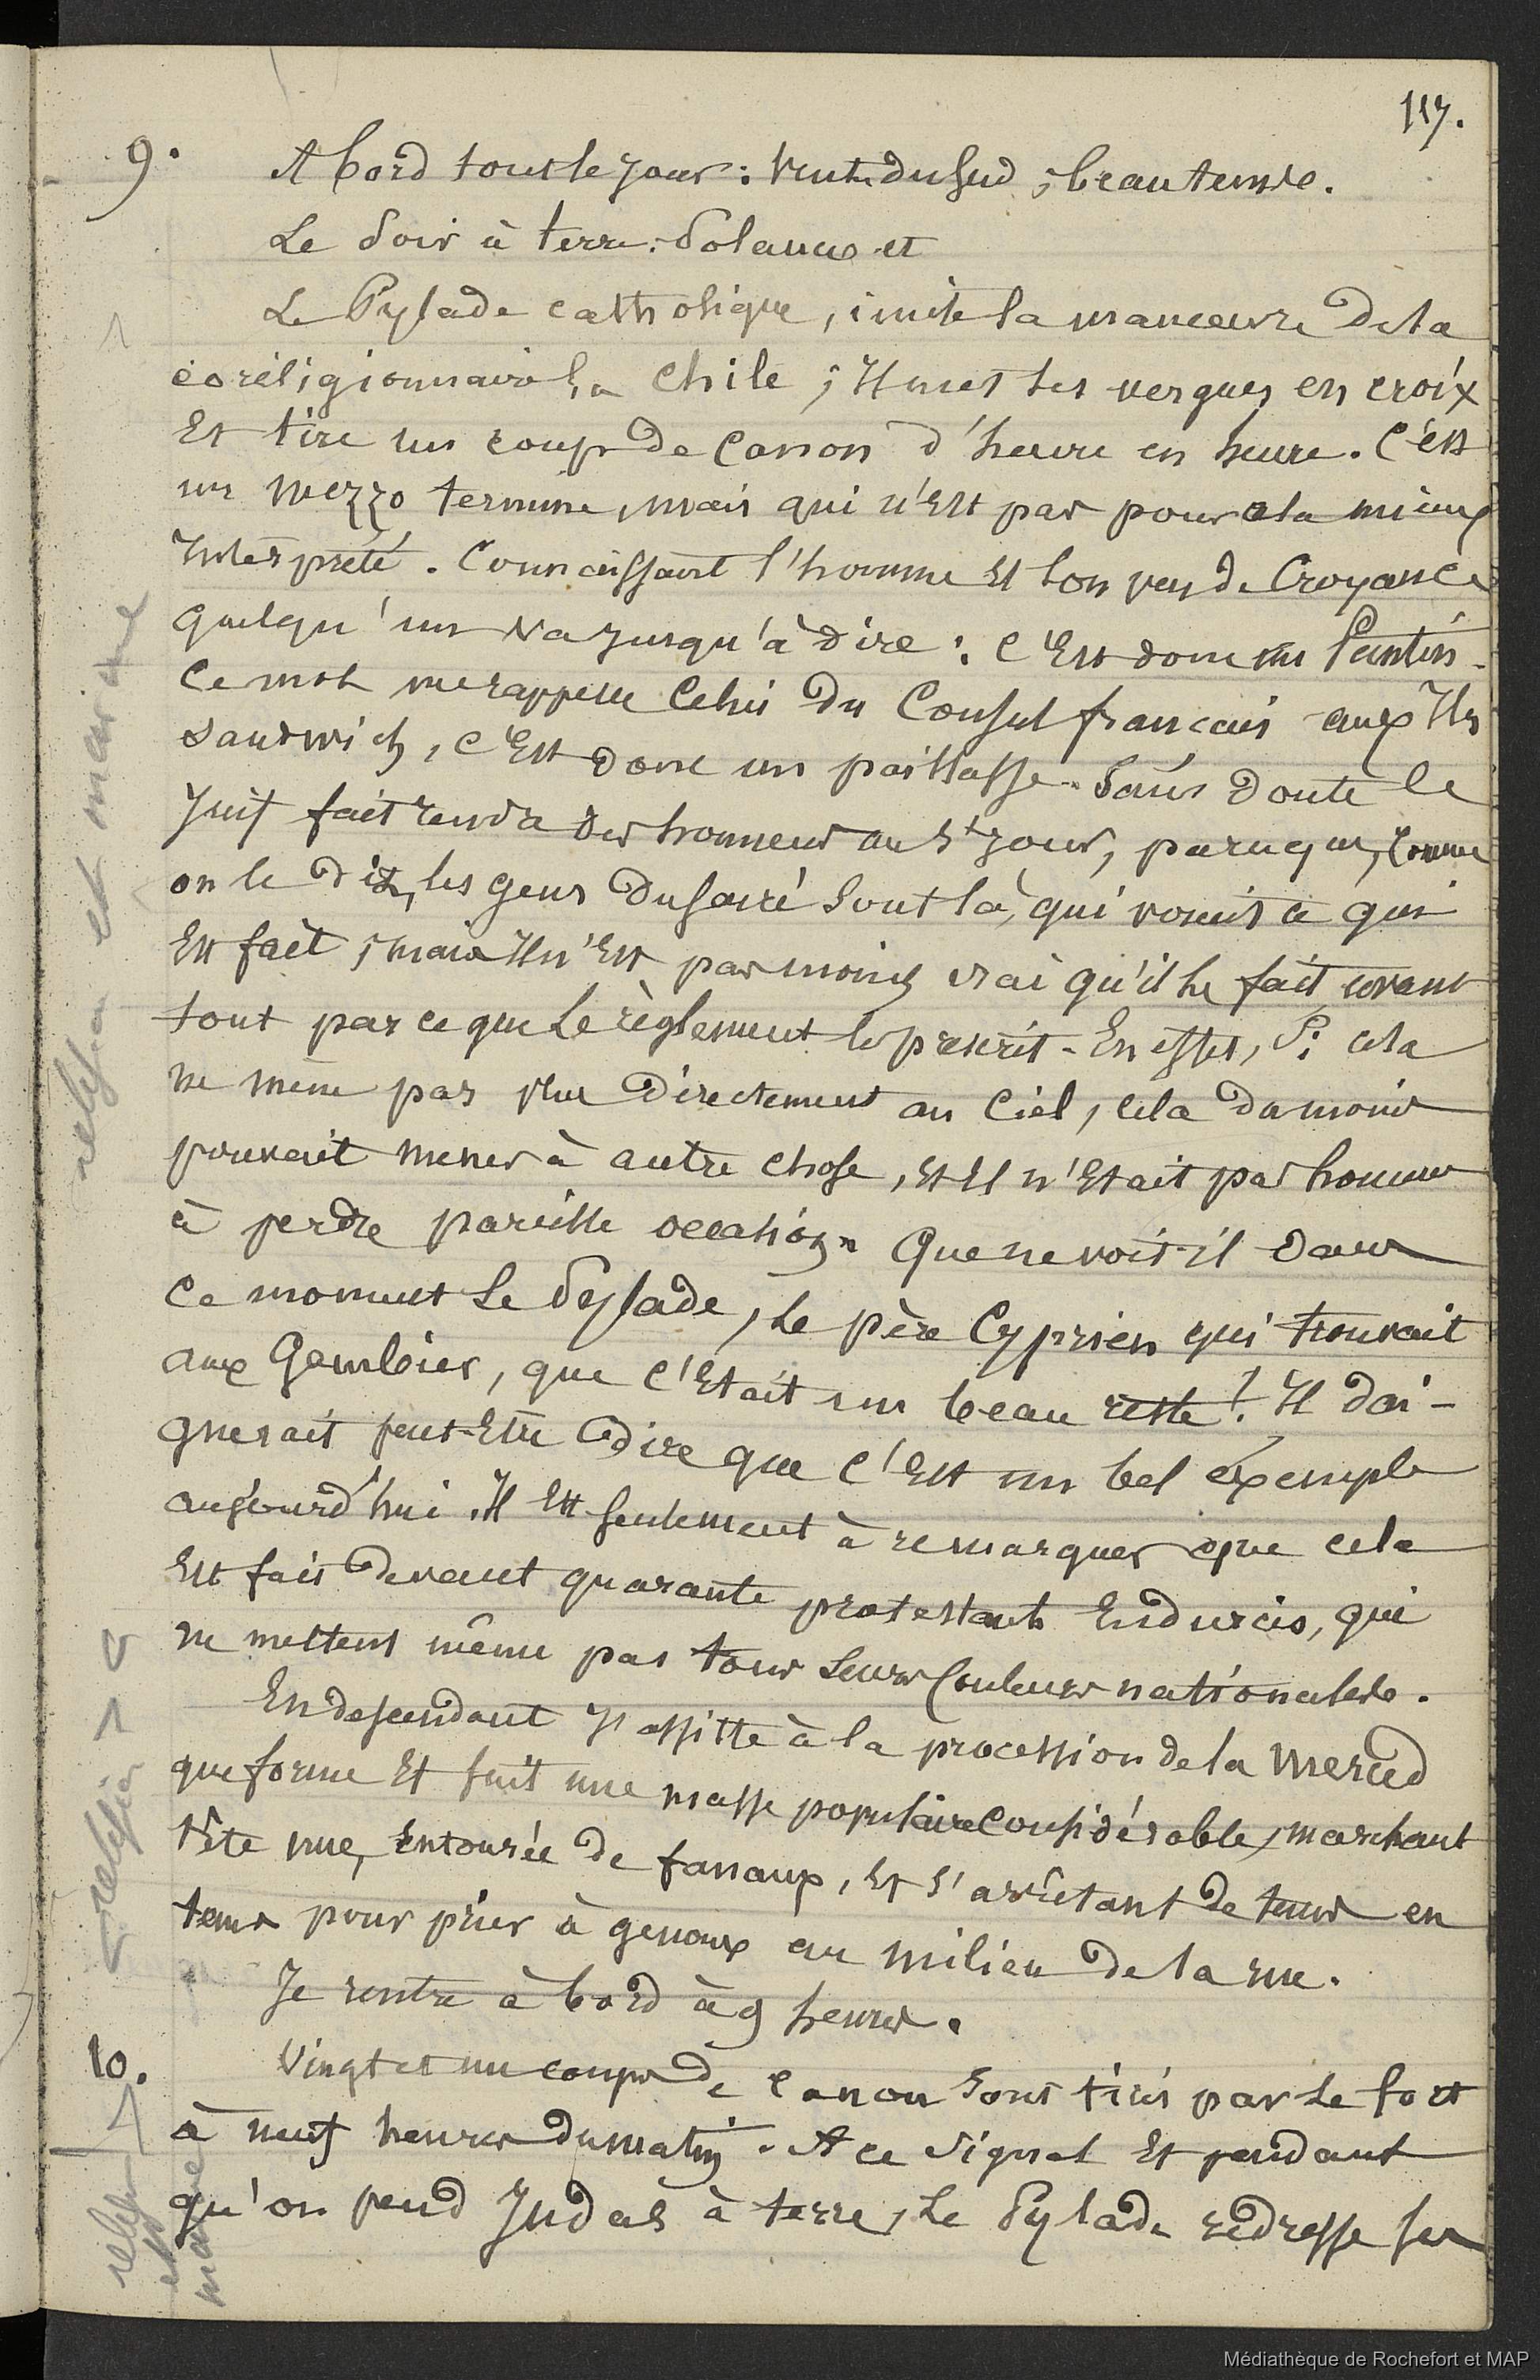 117.
9. A bord tout le jour : Vent du Sud ; beau temps.
Le Soir à terre : Solances et
Le Pylade catholique, imite la manœuvre de la
coréligionnaire la Chile ; Il met ses vergues en croix
Et tire un coup de Canon d'heure en heure. C'est
un mezzo termine, mais qui n'est pas pour cela mieux
Interprété. Connaissant l'homme Et son peu de Croyance
quelqu'un va jusqu'à dire : C'Est donc un Pantin.
Ce mot me rappelle Celui du Consul français aux Iles
Sandwich, C'Est donc un paillasse. Sans doute le
Juif fait rendre des honneurs au St jour, parceque, comme
on le dit, les gens du sacré sont là, qui voient ce qui
Est fait ; mais Il n'Est pas moins vrai qu'il le fait avant
tout parce que Le règlement le prescrit. En effet, Si cela
ne mène pas plus directement au Ciel, cela du moins
pouvait mener à autre chose, Et Il n'Etait pas homme
à perdre pareille occasion. Que ne voit-il dans
Ce moment Le Pylade, Le père Cyprien qui trouvait
aux Gambier, que C'Etait un beau reste ! Il dai-
gnerait peut-Etre dire que C'Est un bel exemple
aujourd'hui. Il Est seulement à remarquer que cela
Est fait devant quarante protestants Endurcis, qui
ne mettent même pas tous Leurs Couleurs nationales.
En descendant J'assiste à la procession de la Merced
que forme Et suit une masse populaire considérable, marchant
tête nue, entourée de fanaux, Et s'arrêtant de tems en
tems pour prier à genoux au milieu de la rue.
Je rentre à bord à 9 heures.
10. Vingt et un coups de Canon sont tirés par Le fort
à neuf heures du matin. A ce signal Et pendant
qu'on pend Judas à terre, Le Pylade redresse ses
religion et marine
religion
religion et marine
Médiathèque de Rochefort et MAP